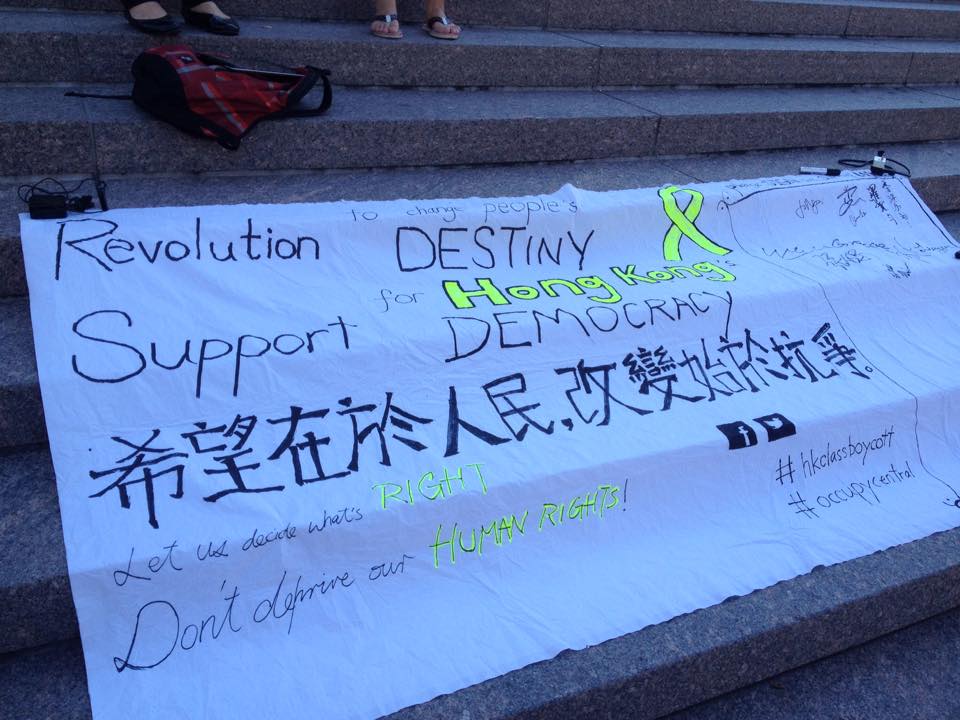 Revolution to change people's DESTINY
Support for Hong Kong's DEMOCRACY
希望在於人民,改變始於抗爭。
Let us decide what's RIGHT
Don't deprive our HUMAN RIGHTS!
#hkclassboycott
#occupycentral